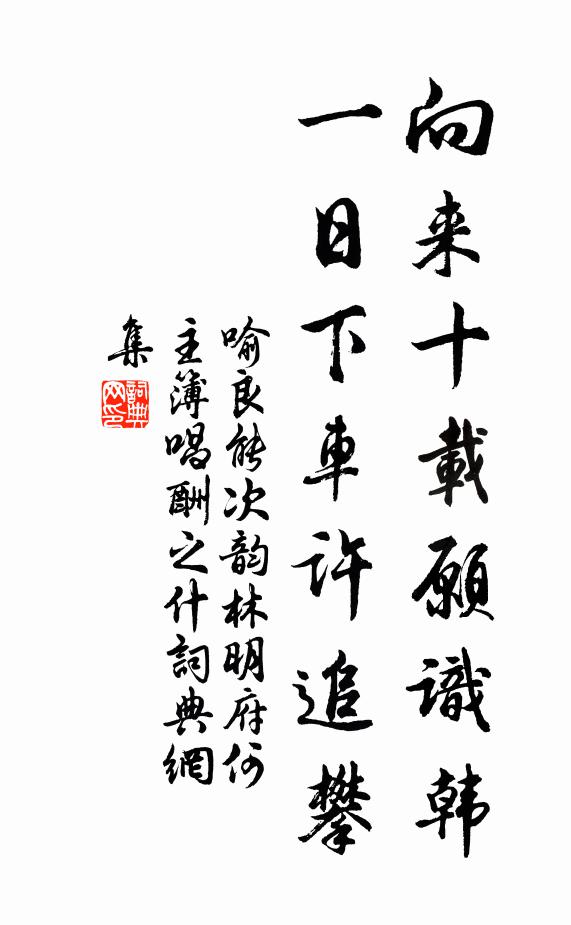 向来十載願識韩
一日下車許追攀
喻良能次韵林明府何
主簿唱酬之什詞典網
集
詞典
网印